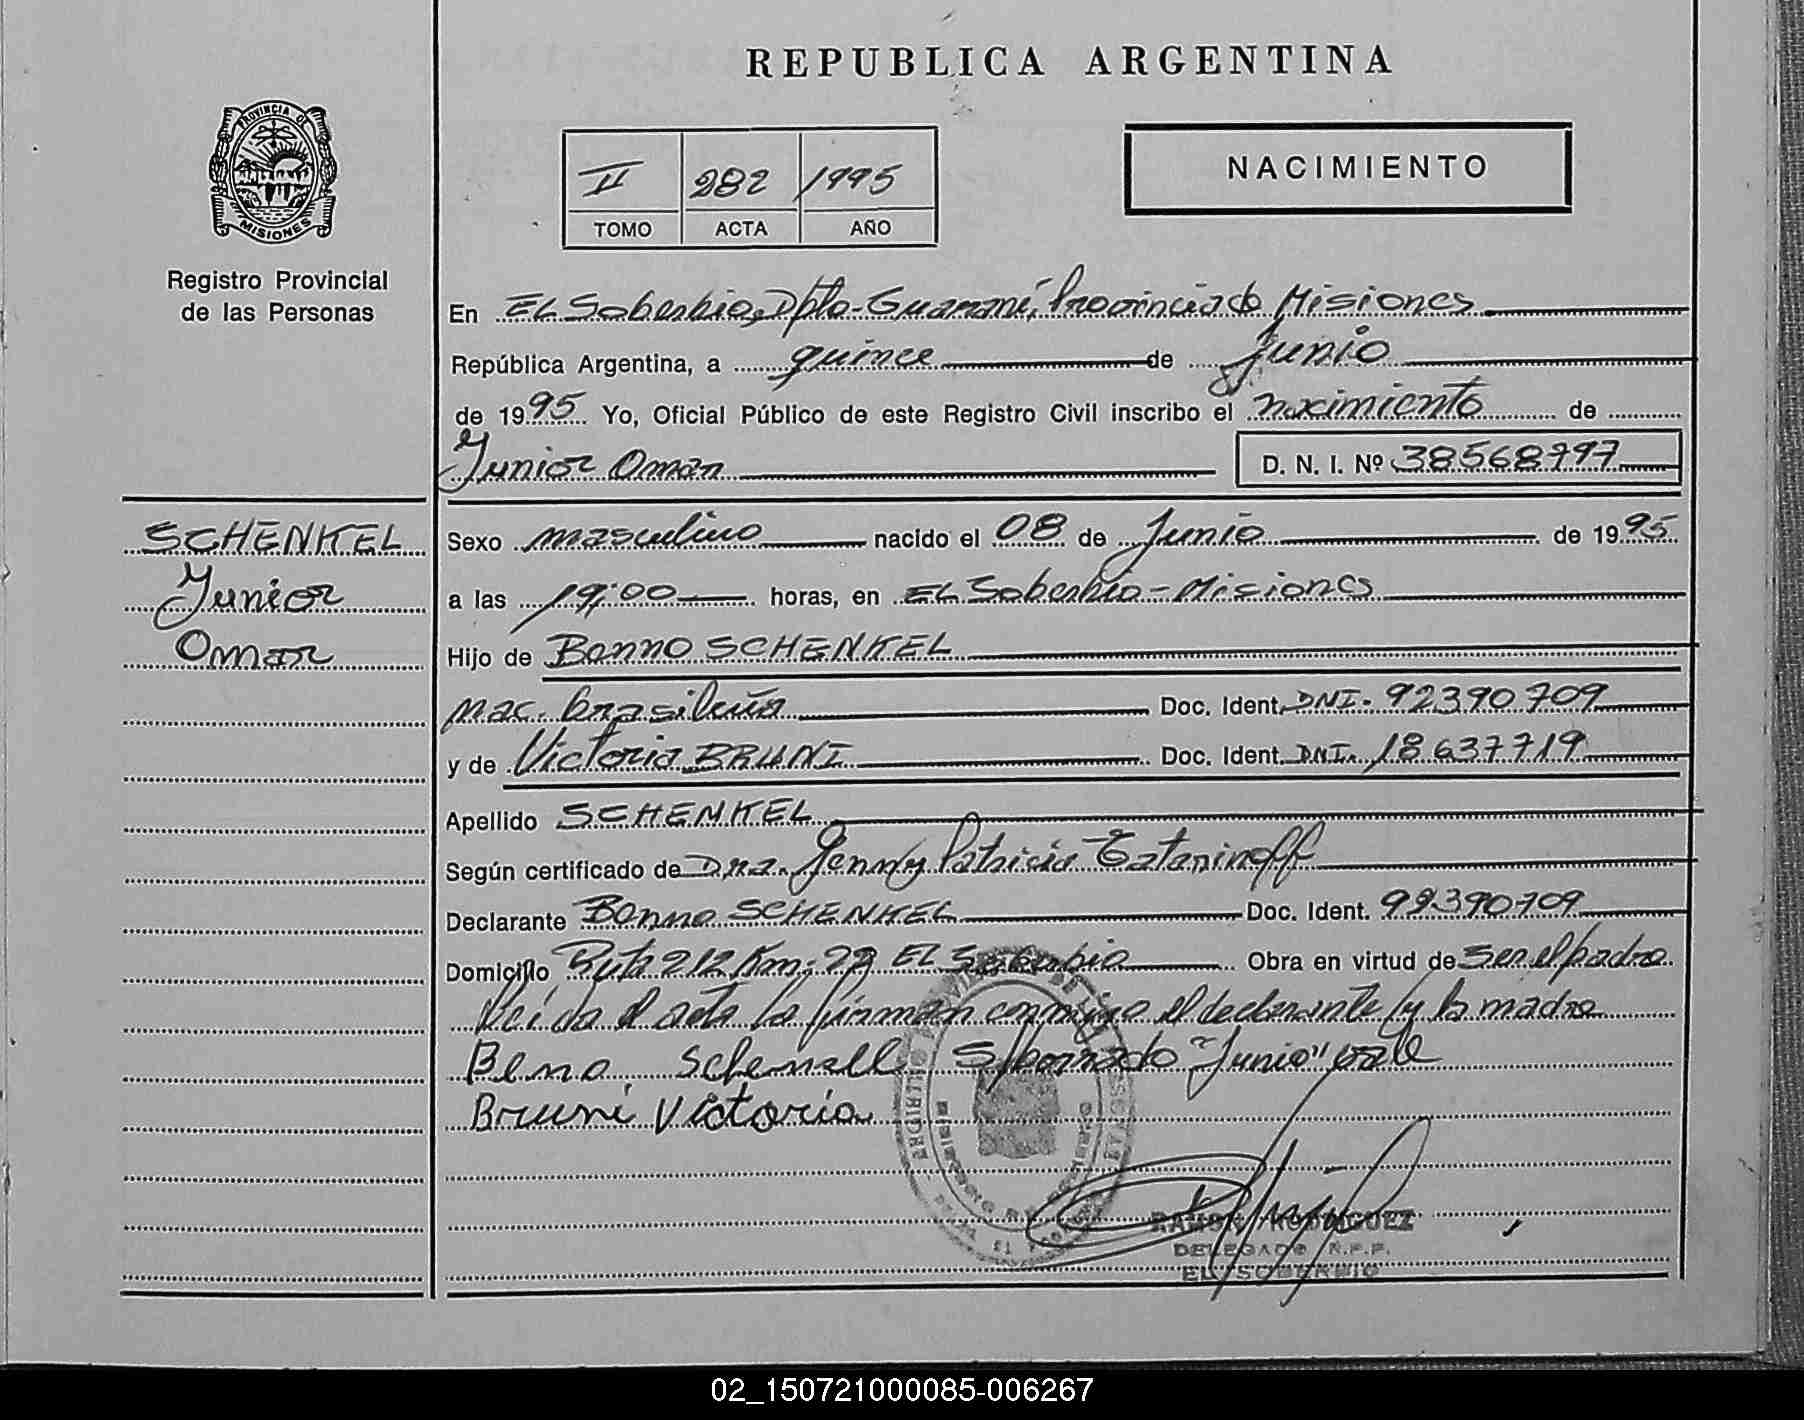 REPUBLICA ARGENTINA
PROVINCIA DE
MISIONES
Registro Provincial
de las Personas
II 282 1995
TOMO ACTA AÑO
NACIMIENTO
En El Soberbio, Dpto-Guaraní, Provincia de Misiones
República Argentina, a quince de Junio
de 1995 Yo, Oficial Público de este Registro Civil inscribo el nacimiento de
Junior Omar D. N. I. Nº 38568997
SCHENKEL
Junior
Omar
Sexo masculino nacido el 08 de Junio de 1995
a las 19:00 horas, en El Soberbio - Misiones
Hijo de Benno SCHENKEL
nac. brasileña Doc. Ident. DNI. 92390709
y de Victoria BRUNI Doc. Ident. DNI. 18637719
Apellido SCHENKEL
Según certificado de Dra. Jenny Patricia
Declarante Benno SCHENKEL Doc. Ident. 92390709
Domicilio Ruta 212 Km: El Soberbio Obra en virtud de ser el padre
Leída el acta la firman conmigo el declarante y la madre
Beno S/borrado "Junio" vale
Bruni Victoria
RAMON RODRIGUEZ
DELEGADO R.P.P.
EL SOBERBIO
02_150721000085-006267